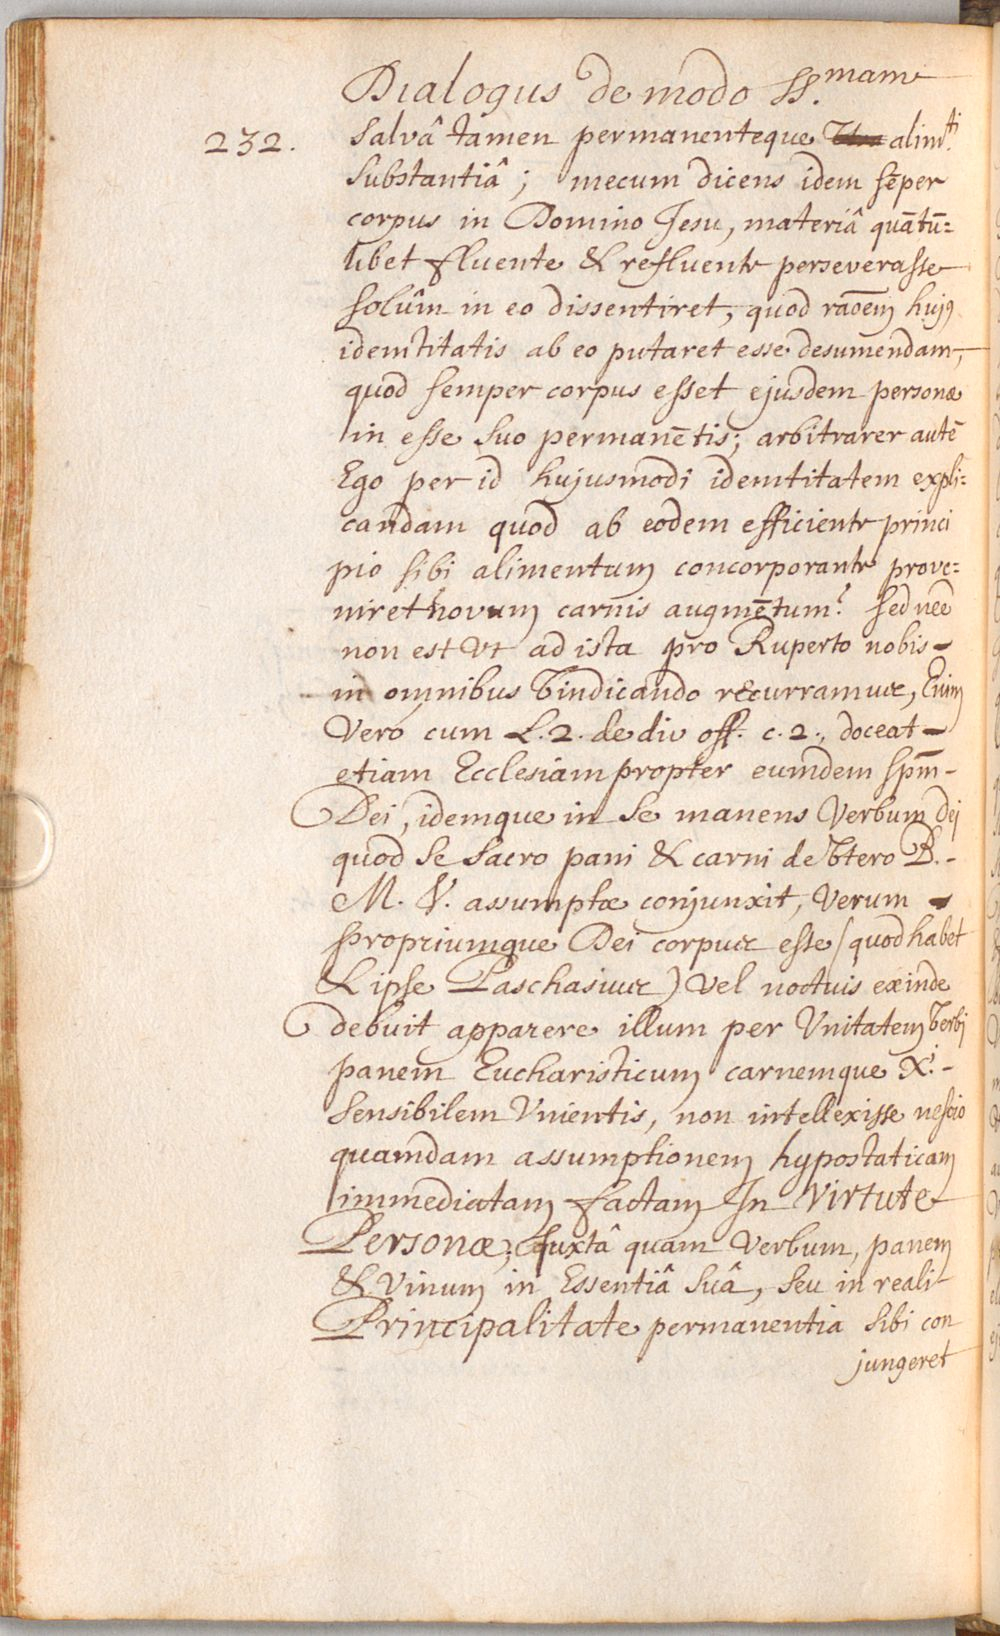 Dialogus de modo SS.mam
232. Salvâ tamen permanenteque alim.ti
substantiâ; mecum dicens idem sēper
corpus in Domino Jesu, materiâ quātū=
libet fluente & refluente perseverasse
solûm in eo dissentiret, quod raōem hujꝰ
idemtitatis ab eo putaret esse desumendam,
quod semper corpus esset ejusdem personæ
in esse suo permanētis; arbitrarer autē
Ego per id hujusmodi idemtitatem expli=
candam quod ab eodem efficiente princi
pio sibi alimentum concorporante prove=
niret novum carnis augmētum? sed neē
non est Vt ad ista pro Ruperto nobis-
in omnibus Vindicando recurramus, Enim
Vero cum L.2. de div off. c.2., doceat-
etiam Ecclesiam propter eumdem spm̄-
Dei, idemque in se manens Verbum dej
quod se sacro pani & carni de Vtero B.-
M. V. assumptæ conjunxit, Verum -
propriumque Dei corpus esse (quod habet
& ipse Paschasius) Vel noctuis exinde
debuit apparere illum per Vnitatem Verbi
panem Eucharisticum carnemque X.i-
sensibilem Vnientis, non intellexisse nescio
quamdam assumptionem hypostaticam
immediatam factam In Virtute
Personæ; Juxtâ quam Verbum, panem
& Vinum in Essentiâ suâ, seu in reali
Principalitate permanentia sibi con
jungeret